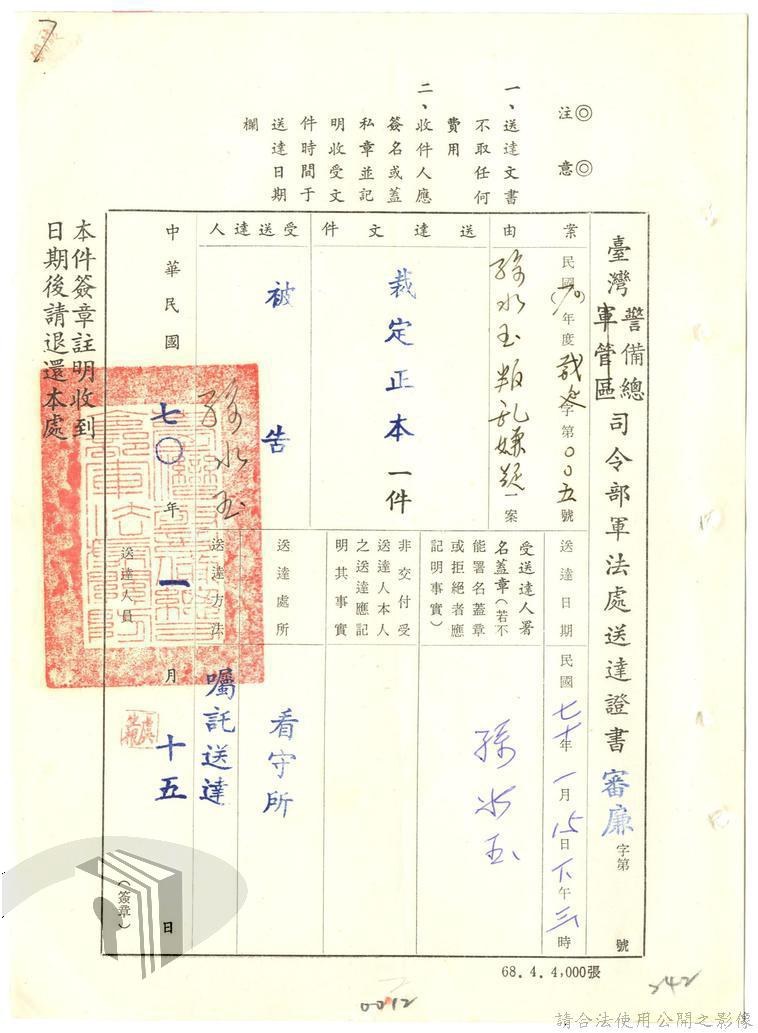 注意
一、送達文書
不取任何
費用
二、收件人應
簽名或蓋
私章並記
明收受文
件時間于
送達日期
欄
臺灣警備總軍管區司令部軍法處送達證書 審廉 字第 號
案由
民國70年度裁字第00五號
孫水玉叛乱嫌疑一案
送達文件
裁定正本一件
受送達人
被告
孫水玉
送達日期
民國七十年一月15日下午三時
受送達人署
名蓋章(若不
能署名蓋章
或拒絕者應
記明事實)
孫水玉
非交付受
送達人本人
之送達應記
明其事實
送達處所
看守所
送達方法
囑託送達
中華民國七〇年一月十五日
送達人員
(簽章)
本件簽章註明收到
日期後請退還本處
68.4.4,000張
0012
242
請合法使用公開之影像